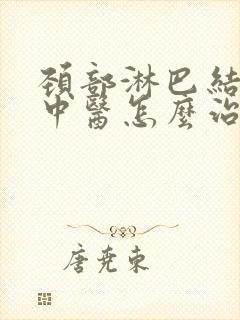 頸部淋巴結
中醫怎麼治
唐堯東